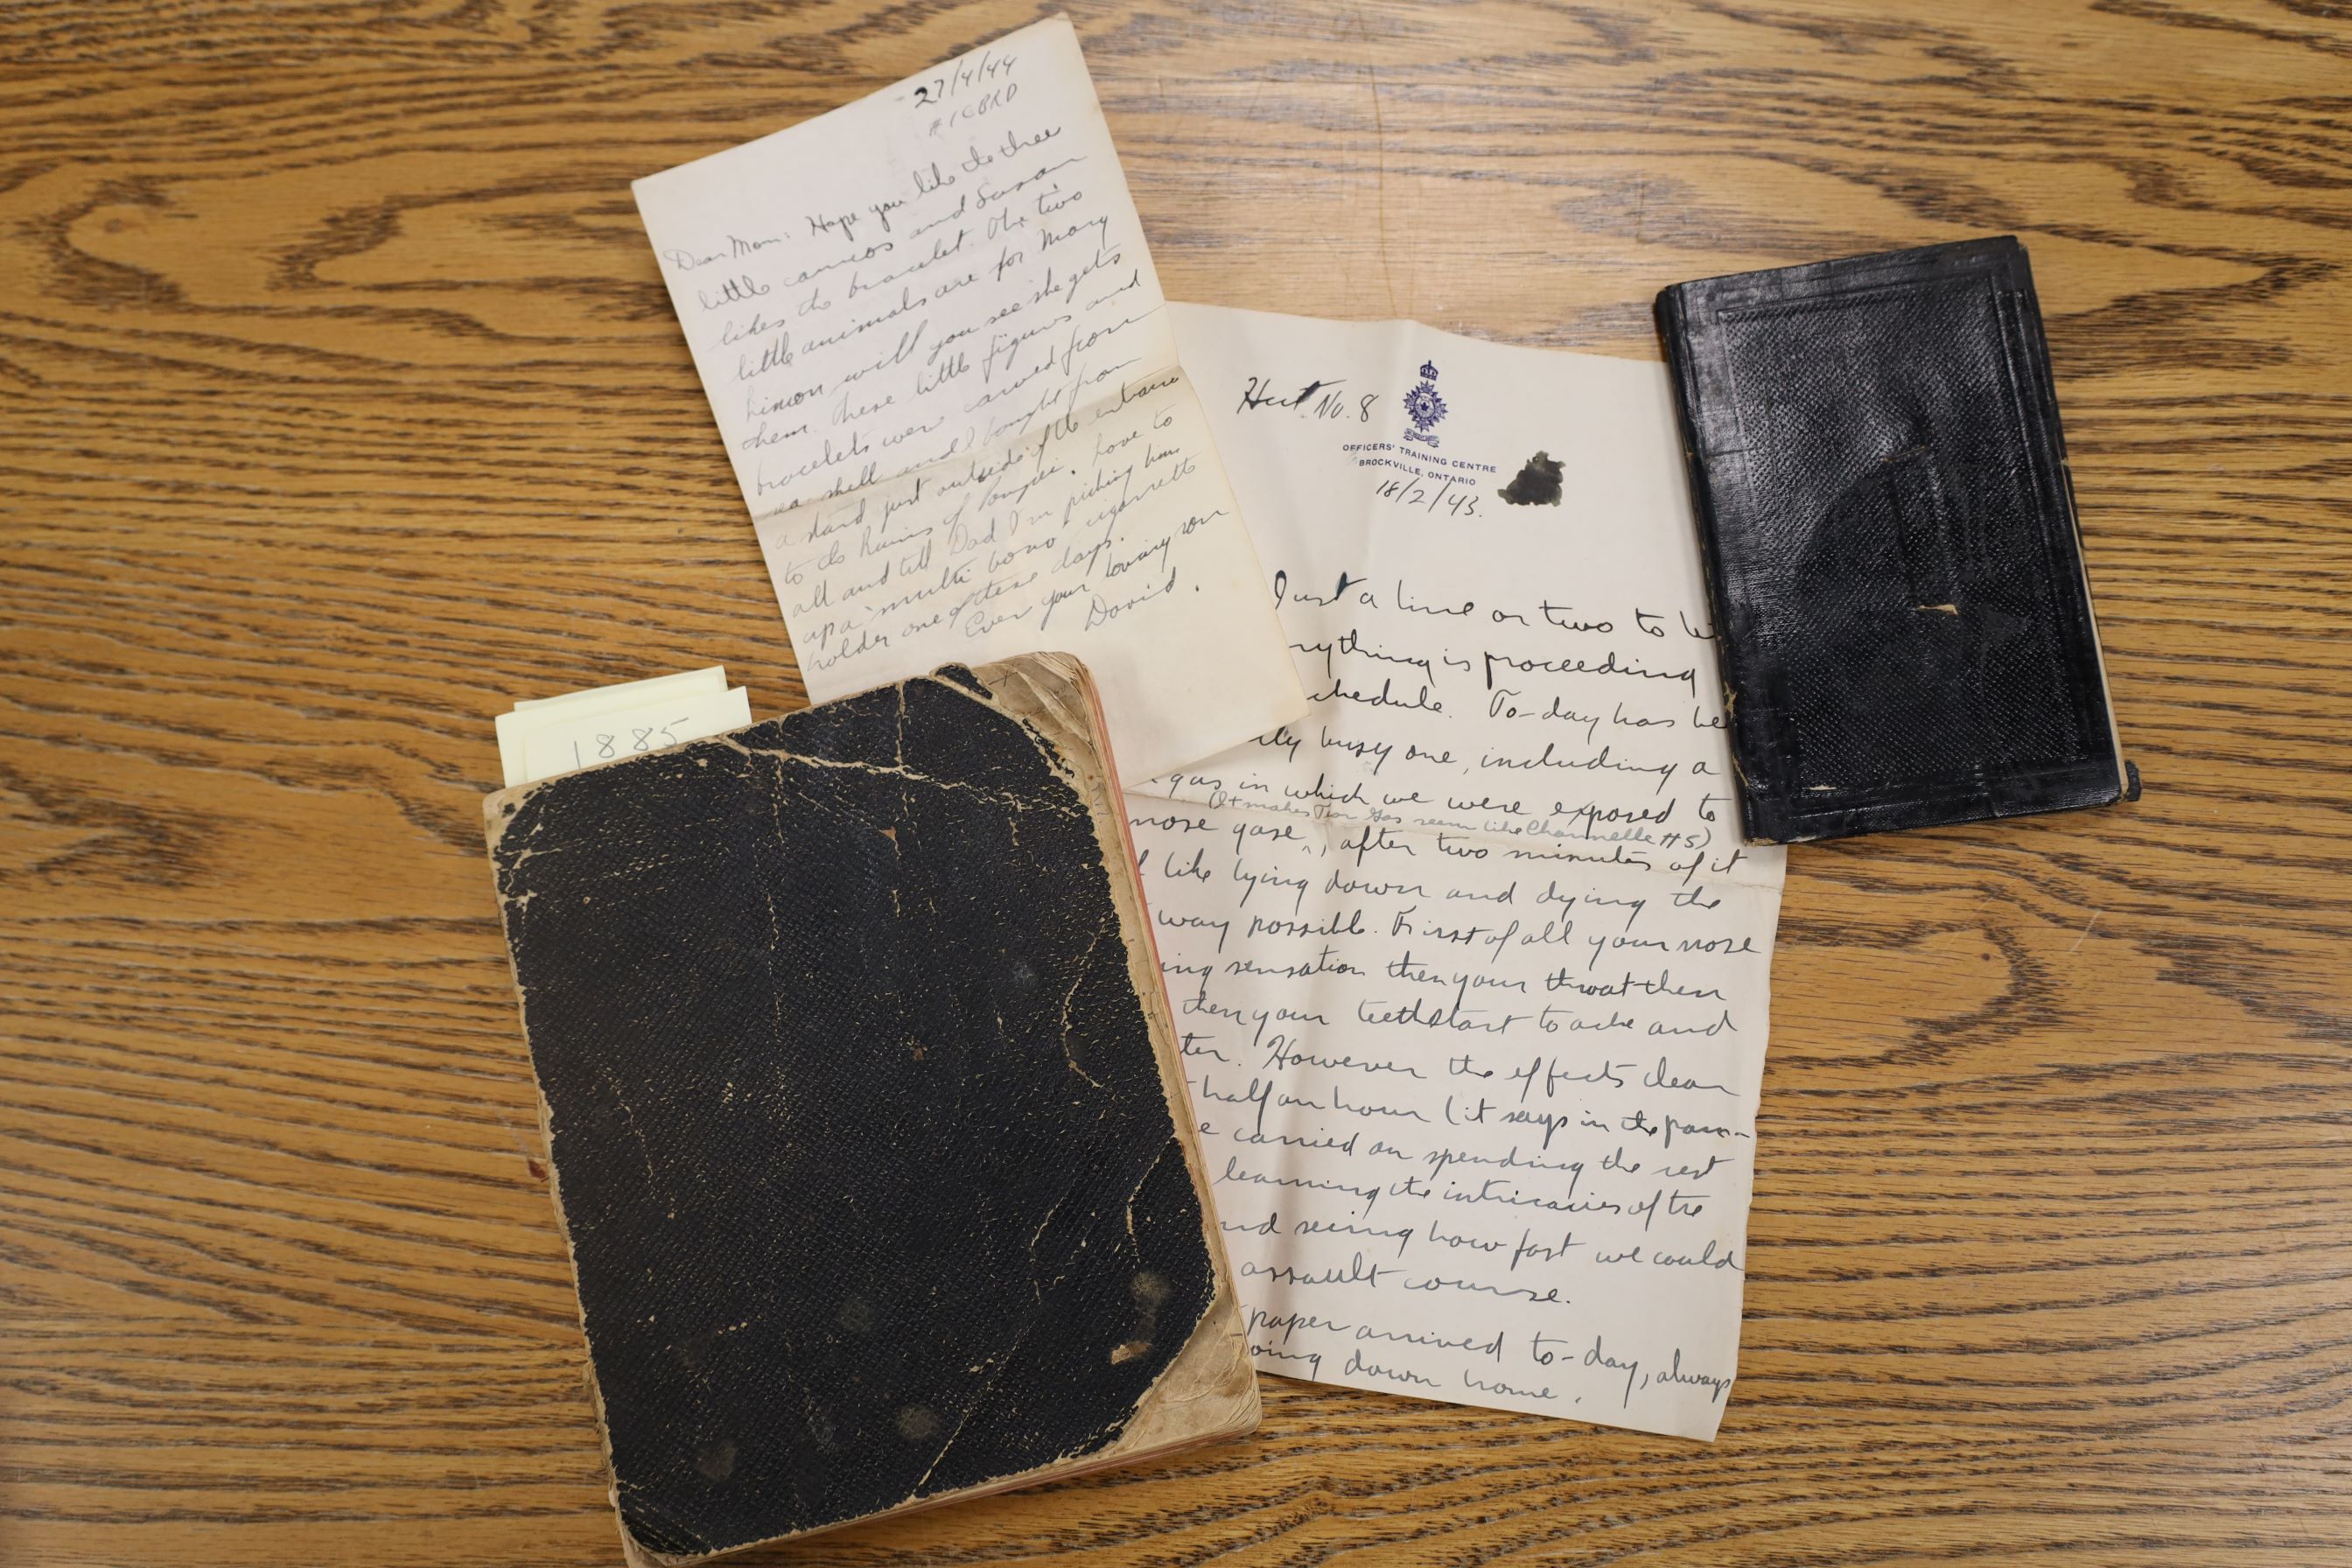 27/4/44
#1CBRD
Dear Mom: Hope you like the three
little cameos and Susan
likes the bracelet. The two
little animals are for Mary
will you see she gets
them. These little figures and
bracelets were carved from
sea shell and I bought from
a stand just outside of the entrance
to the Ruins of Pompeii. Love to
all and tell Dad I'm picking him
up a "multi bono" cigarette
holder one of these days.
Ever your loving son
David.
Hut No. 8
OFFICERS' TRAINING CENTRE
BROCKVILLE, ONTARIO
18/2/43.
Just a line or two to le
rything is proceeding
chedule. To-day has be
ly busy one, including a
gas in which we were exposed to
(It makes Tear Gas seem like Channelle #5)
nose gase, after two minutes of it
like lying down and dying the
way possible. First of all your nose
ing sensation then your throat then
then your teeth start to ache and
ter. However the effects clear
half an hour (it says in the pam-
e carried on spending the rest
learning the intricacies of the
nd seeing how fast we could
assault course.
paper arrived to-day, always
oing down home.
1885